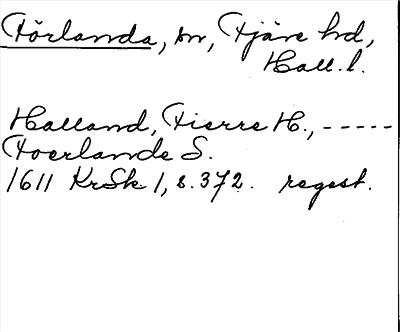 Förlanda, sn, Fjäre hd,
Hall. l.
Halland, Fierre H., -----
Foerlande S.
1611 KrSk 1, s. 372. regest.